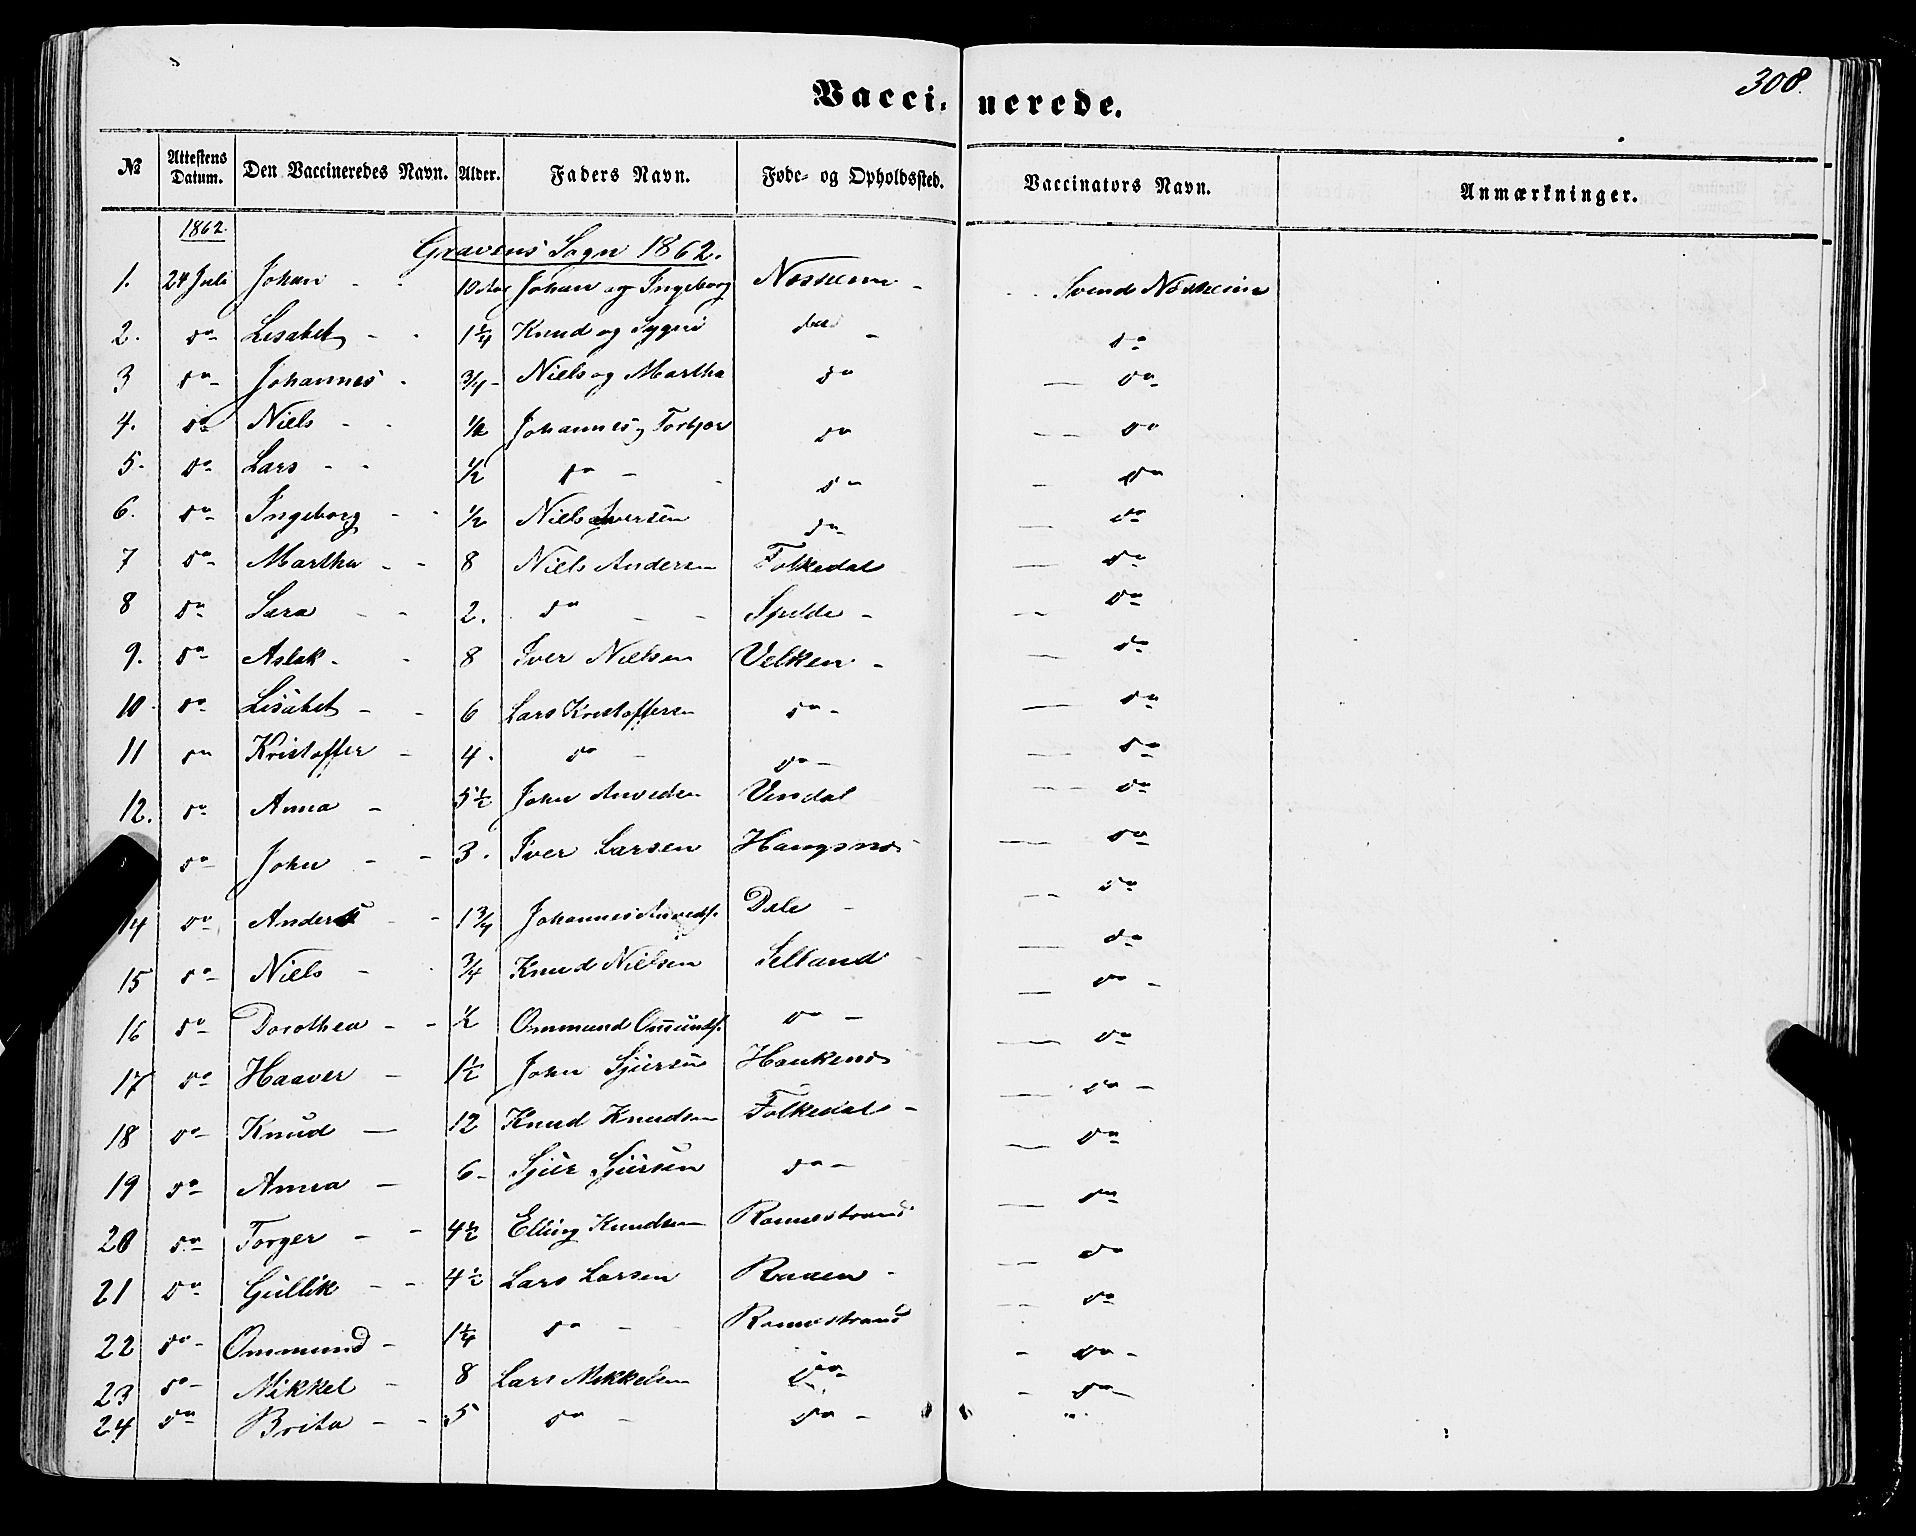 308.
Vaccinerede.
№ Attestens Datum. Den Vaccineredes Navn. Alder. Faders Navn. Føde- og Opholdssted. Vaccinators Navn. Anmærkninger.
1862.
Gravens Sogn 1862.
1. 24 Juli Johan - - Johan og Ingeborg Nesheim - Svend Nesheim
2. do Lisabet - - 1 1/4 Knud og Sygni do - do
3 do Johannes - 3/4 - Niels og Martha do — do
4. do Niels - - 1/2 Johannes og Torbjor do — do
5. do Lars - - 1/2 do - do — do
6. do Ingeborg - - 1/2 Niels Iversen do — do
7 do Martha - - 8 Niels Andersen Folkedal — do
8 do Sara - - 2. do - - Spilde - — do
9. do Aslak - - 8 Iver Nielsen Velken - — do
10 do Lisabet - - 6 Lars Kristoffersen do - — do
11 do Kristoffer - 4. do - do - — do
12. do Anna - 5 1/2 John Arvedsen Vindal — do
do John - - 3. Iver Larsen — do
14 do Anders - - 1 3/4 Johannes Arvedsf. Dale - — do
15 do Niels - 3/4 Knud Nielsen Selland - — do
16 do Dorothea - - 1/2 Ommund Omundsf. do - — do -
17 do Haaver - 1 1/2 John Sjursen Haukenes — do
18 do Knud — 12 Knud Knudsen Folkedal - — do -
19 do Anna - 6 - Sjur Sjursen do - — do
20 do Torger - - 4 1/2 Elling Knudsen Ronnestrand — do
21 do Gullik - - 4 1/2 Lars Larsen Raaen - — do
22 do - Ommund - 1 1/4 do - - Ronnestrand — do
23 do - Mikkel - 8 Lars Mikkelsen do - do -
24 do Brita - - 5 do - do - - do -